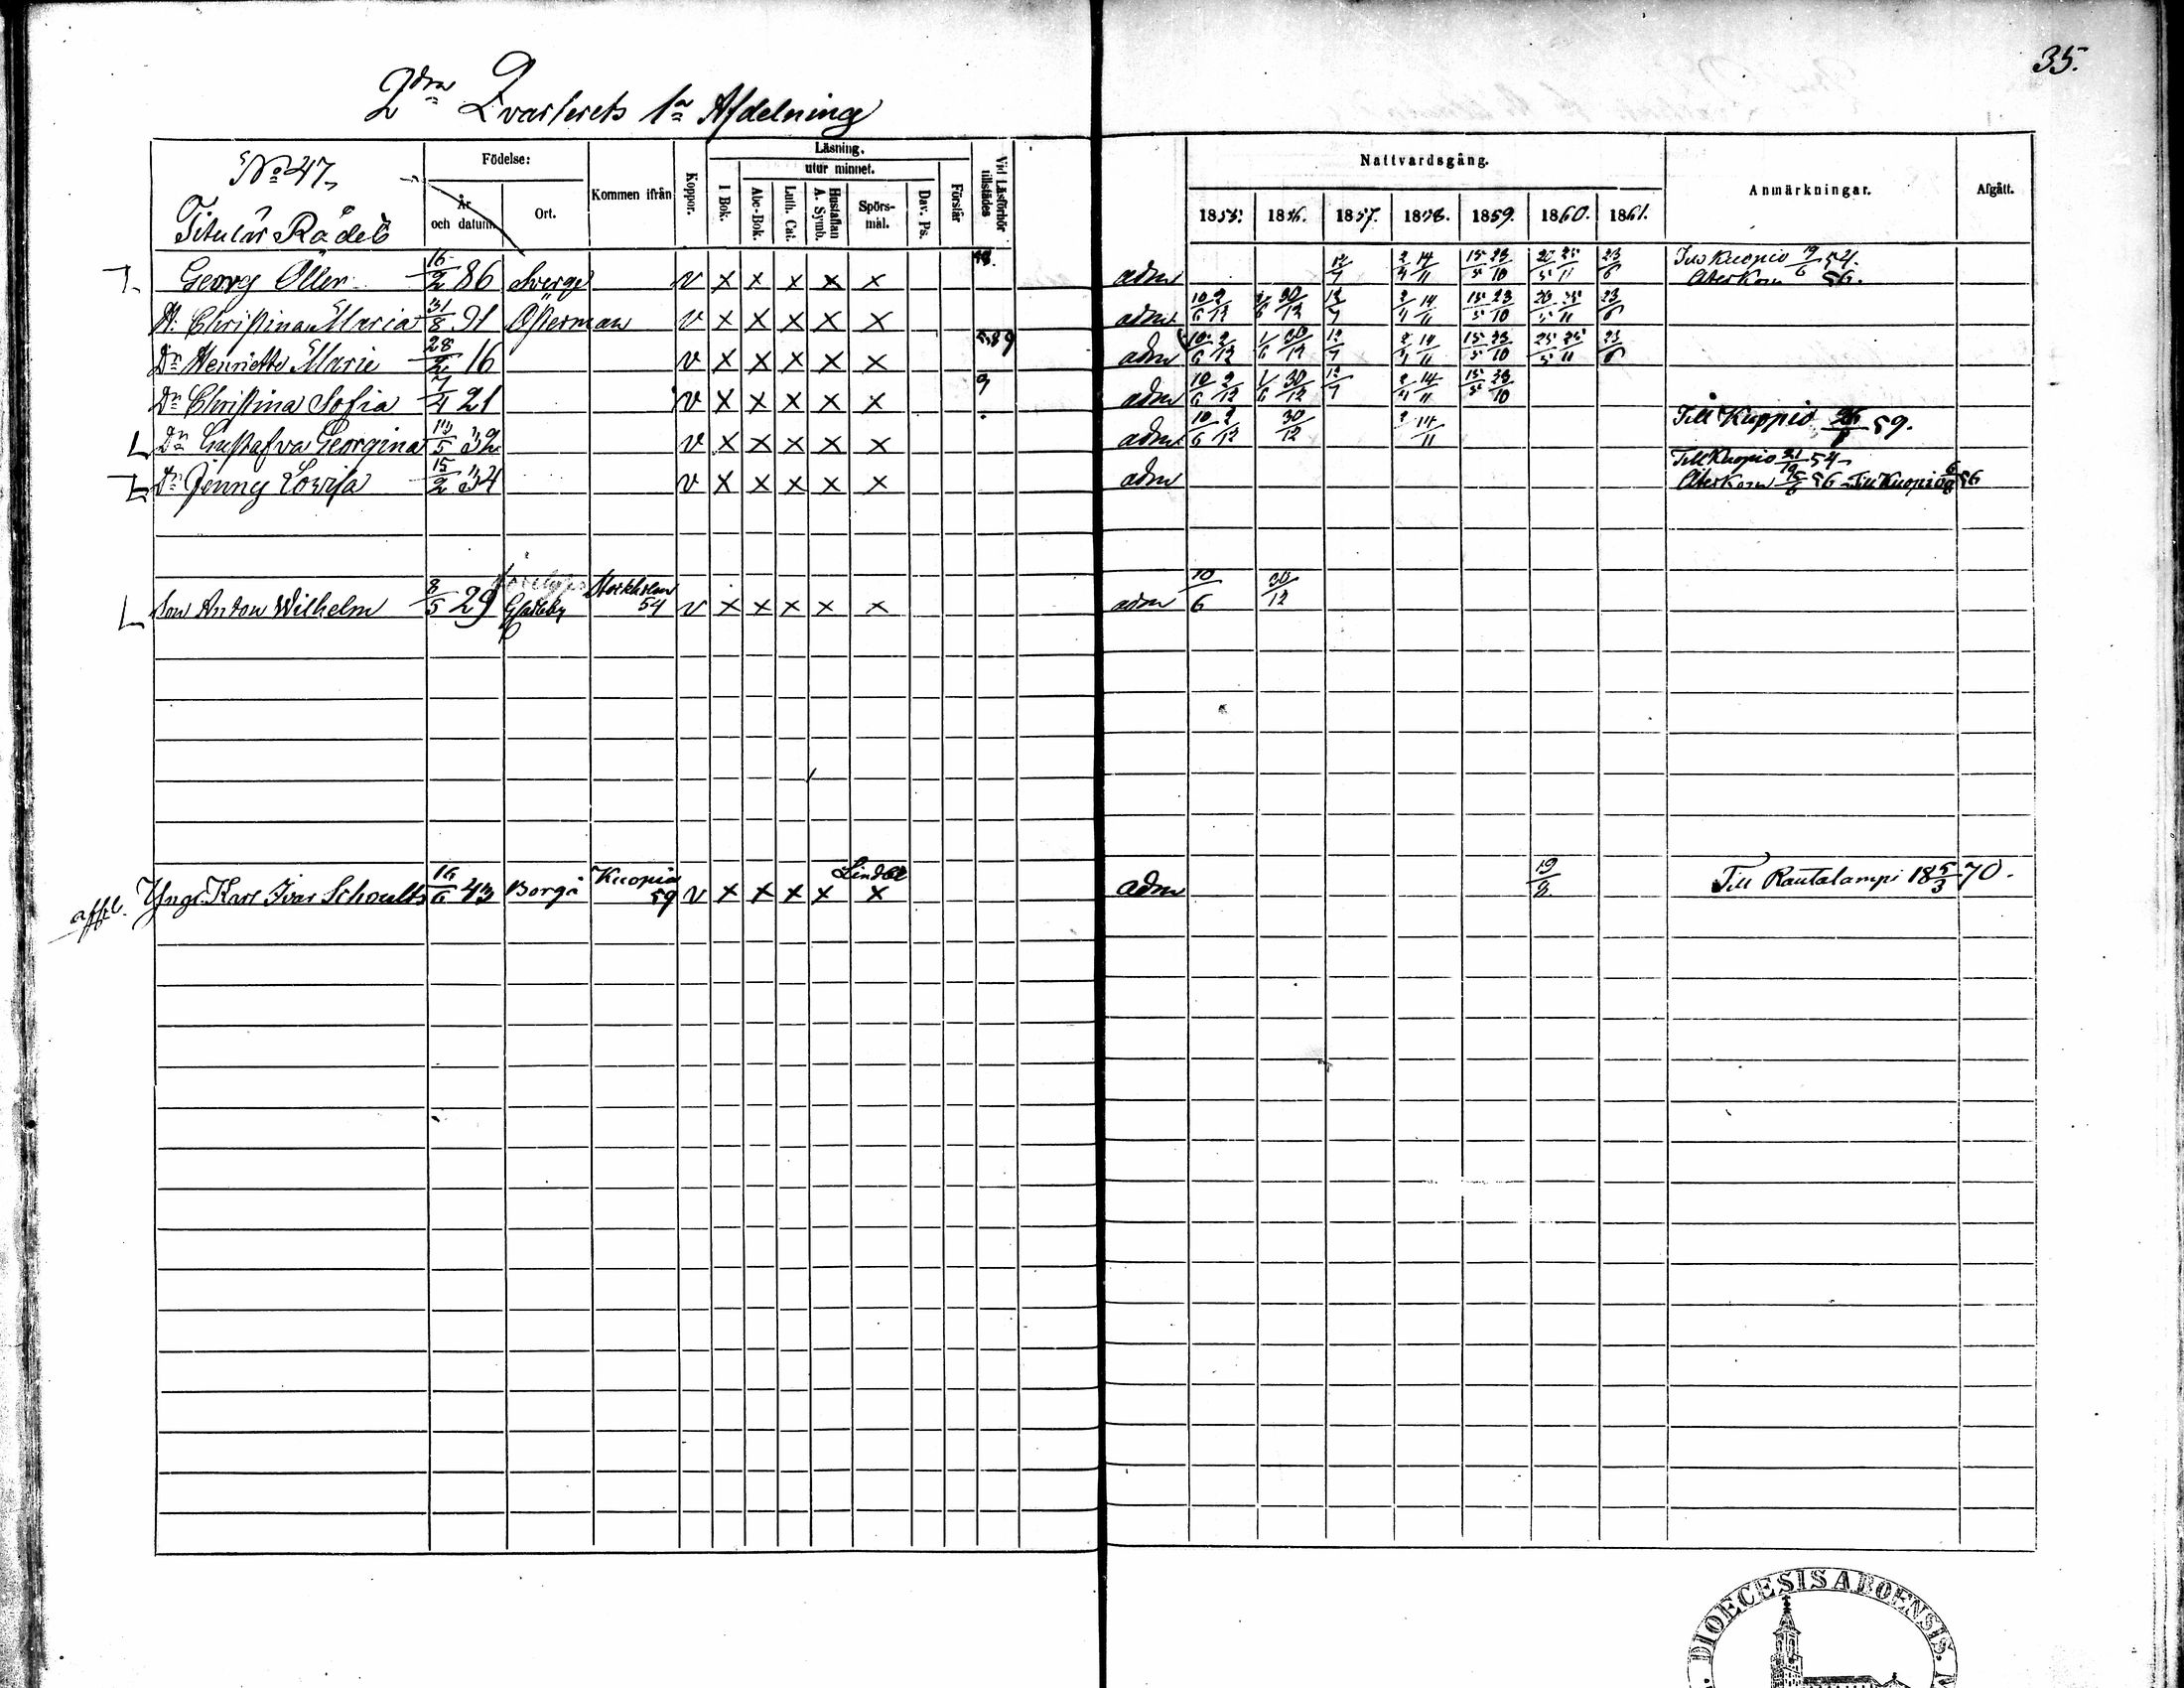 35.
2dra Qvarterets 1a Afdelning
No 47.
Titulär Rådet
Födelse:
År och datum.
Ort.
Kommen ifrån
Koppor.
Läsning.
I Bok.
utur minnet.
Abc-Bok.
Luth. Cat.
Hustaflan A. Symb.
Spörs-mål.
Dav. Ps.
Förstår
Vid Läsförhör tillstädes
Nattvardsgång.
1855. 1856. 1857. 1858. 1859. 1860. 1861.
Anmärkningar.
Afgått.
Georg Öller 16/2 86 Sverge v x x x x x adm 12/7 2/4 14/11 15/5 23/10 25/11 23/6 Till Kuopio 19/6 54.
Återkom 56.
H. Christina Maria 31/8 91 Österman v x x x x x adm 10/6 2/12 30/12 12/7 2/4 14/11 15/5 23/10 25/11 23/6
Dr Henriette Marie 28/2 16 v x x x x x 589 adm 10/6 2/12 1/6 30/12 12/7 2/4 14/11 15/5 23/10 25/5 25/11 23/6
Dr Christina Sofia 7/4 21 v x x x x x 9 adm 10/6 2/12 1/6 30/12 12/7 2/4 14/11 15/5 23/10
Dr Gustafva Georgina 5 32 v x x x x x adm 10/6 2/12 30/12 14/11 Till Kuopio 59.
Dr Jenny Lovisa 15/2 34 v x x x x x adm Till Kuopio 54
Återkom 56 Till Kuopio 56
Son Anton Wilhelm 8/5 29 Stockholm 54 v x x x x x adm 10/6 30/12
affl. Yngl. Karl Ivar Schoultz 43 Borgå Kuopio 59 v x x x x x adm 19/8 Till Rautalampi 18 5/3 70.
DIOECESIS ABOENSIS.